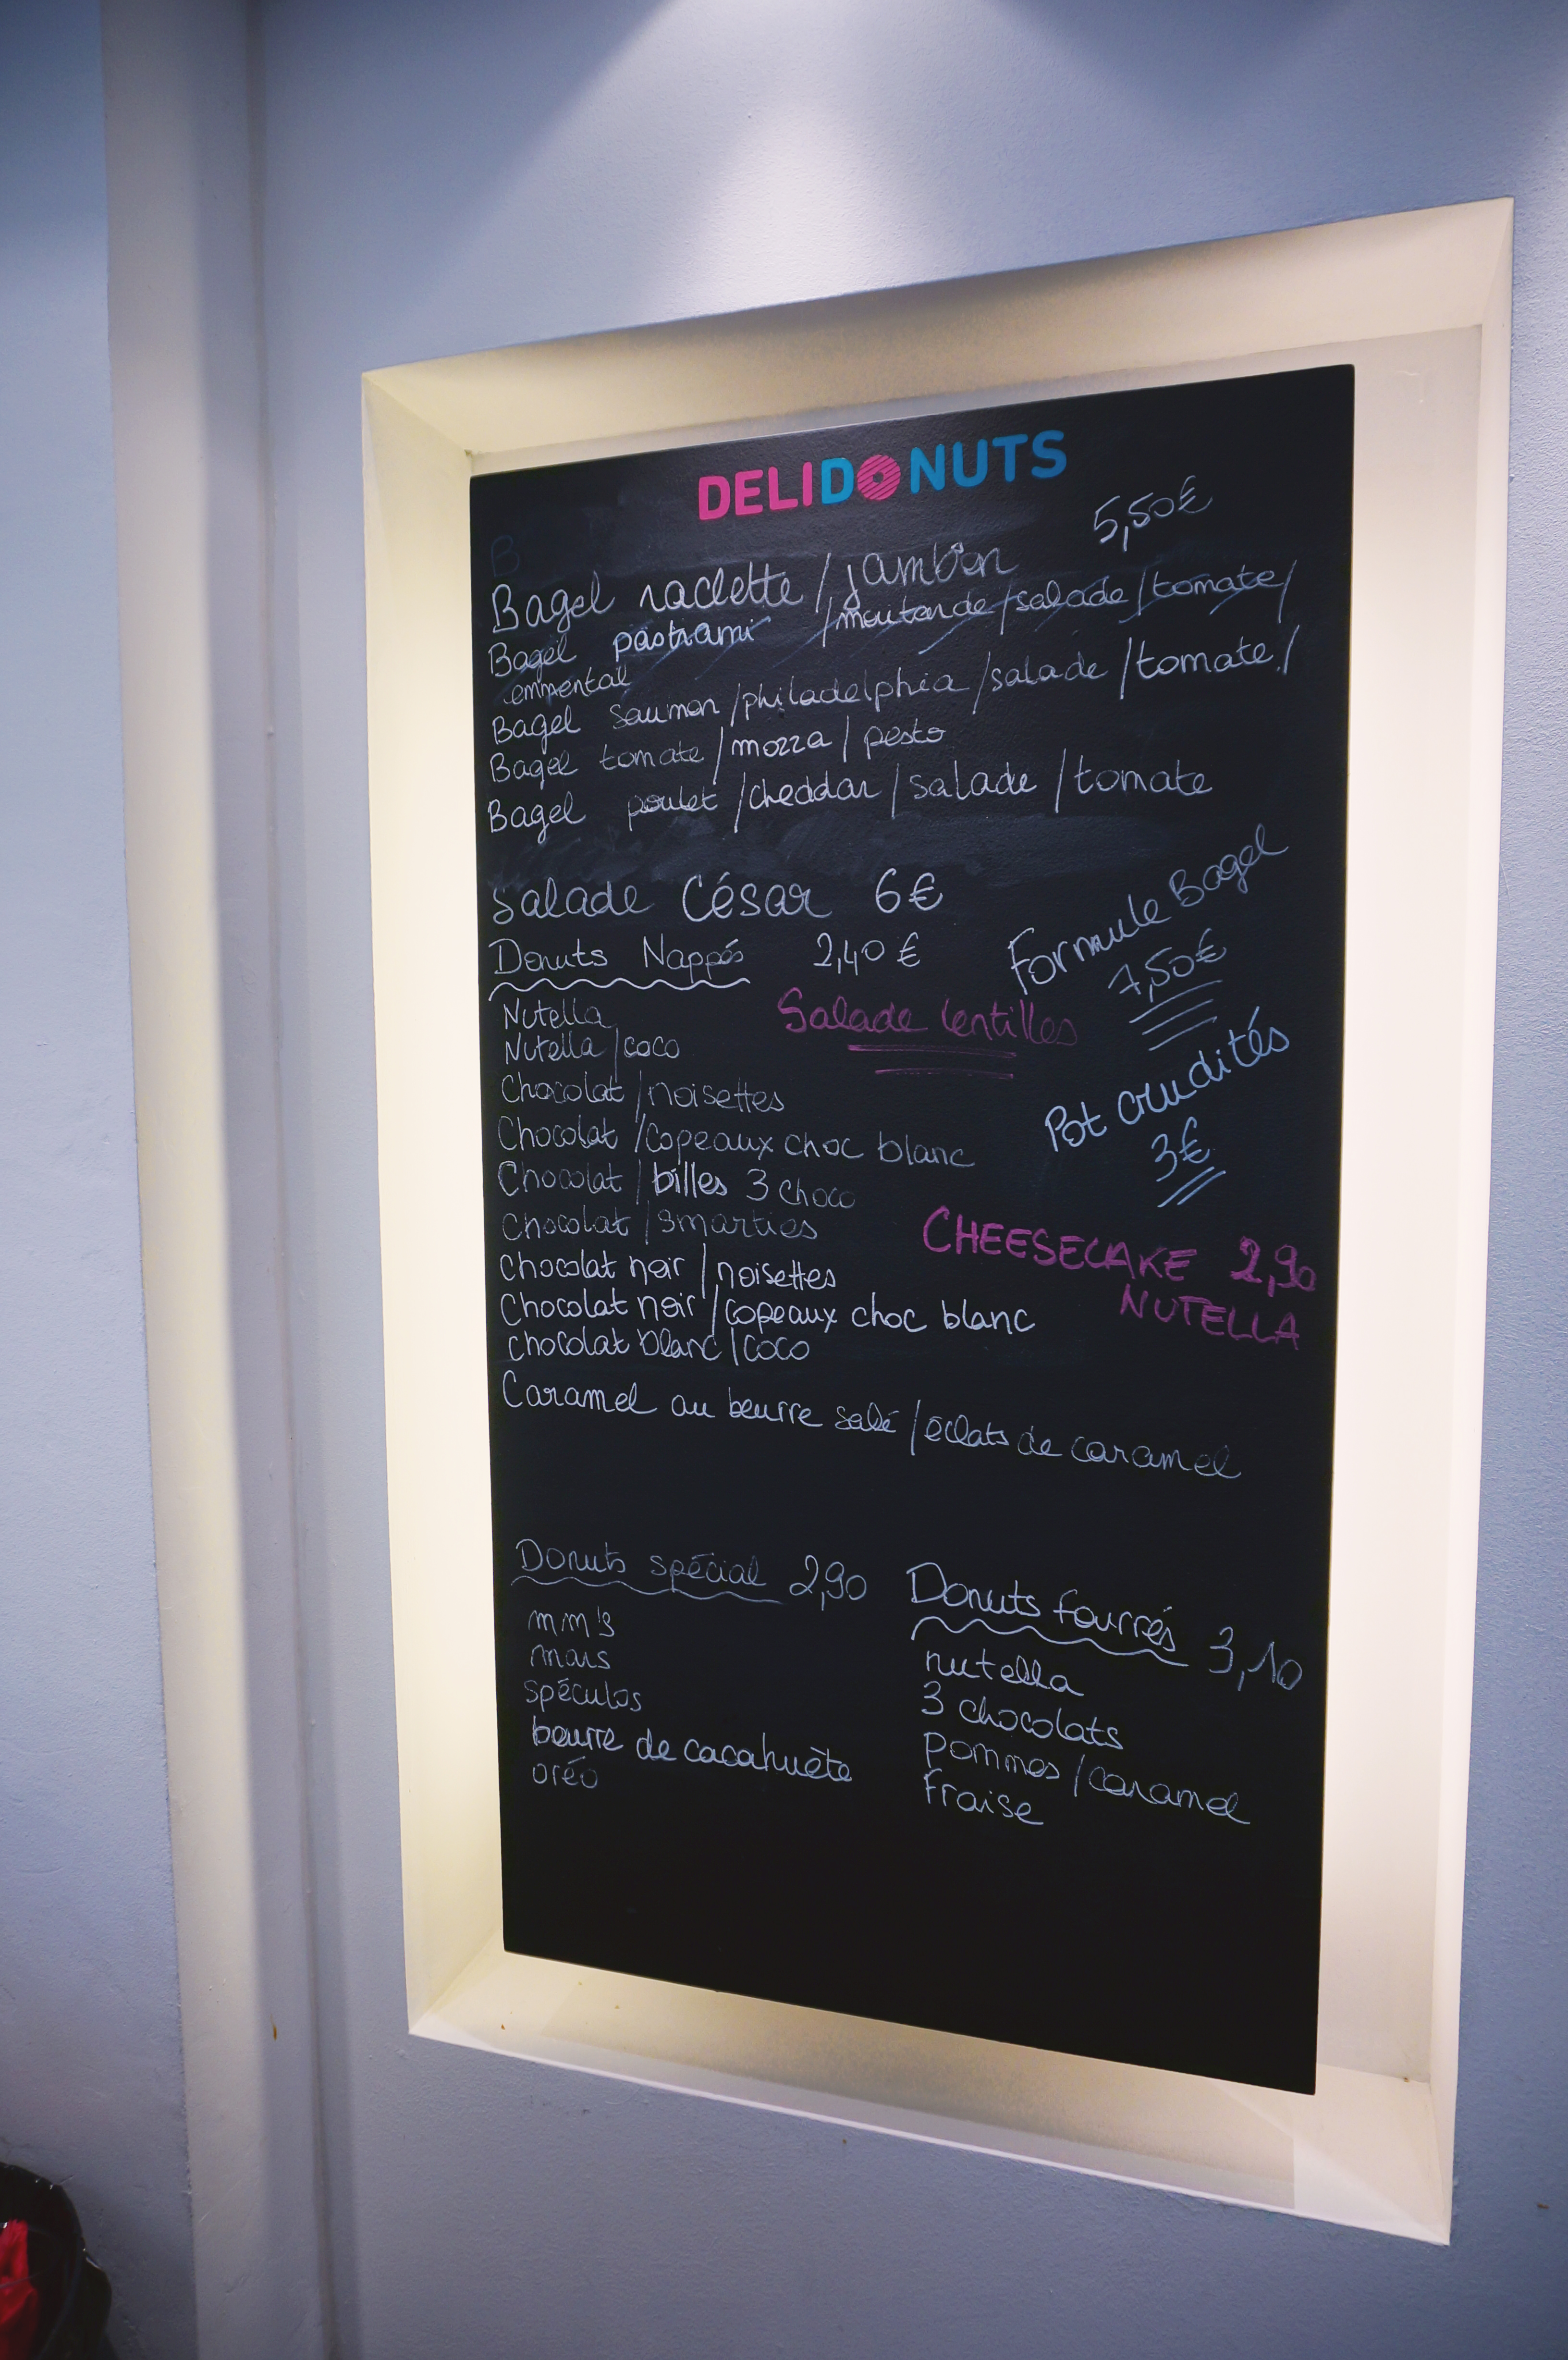 DELIDONUTS
5,50€
Bagel raclette/jambon
Bagel pastrami /moutarde/salade/tomate/
emmental
Bagel saumon/philadelphia/salade/tomate/
Bagel tomate/mozza/pesto
Bagel poulet/cheddar/salade/tomate
Salade César 6€
Formule Bagel
7,50€
Donuts Nappés 2,40€
Salade lentilles
Pot crudités
3€
Nutella
Nutella/coco
Chocolat/noisettes
Chocolat/copeaux choc blanc
Chocolat/billes 3 choco
Chocolat/smarties
CHEESECAKE 2,90
NUTELLA
Chocolat noir/noisettes
Chocolat noir/copeaux choc blanc
chocolat blanc/coco
Caramel au beurre salé/éclats de caramel
Donuts spécial 2,90
mm's
mars
spéculos
beurre de cacahuète
oréo
Donuts fourrés 3,10
nutella
3 chocolats
pommes/caramel
fraise